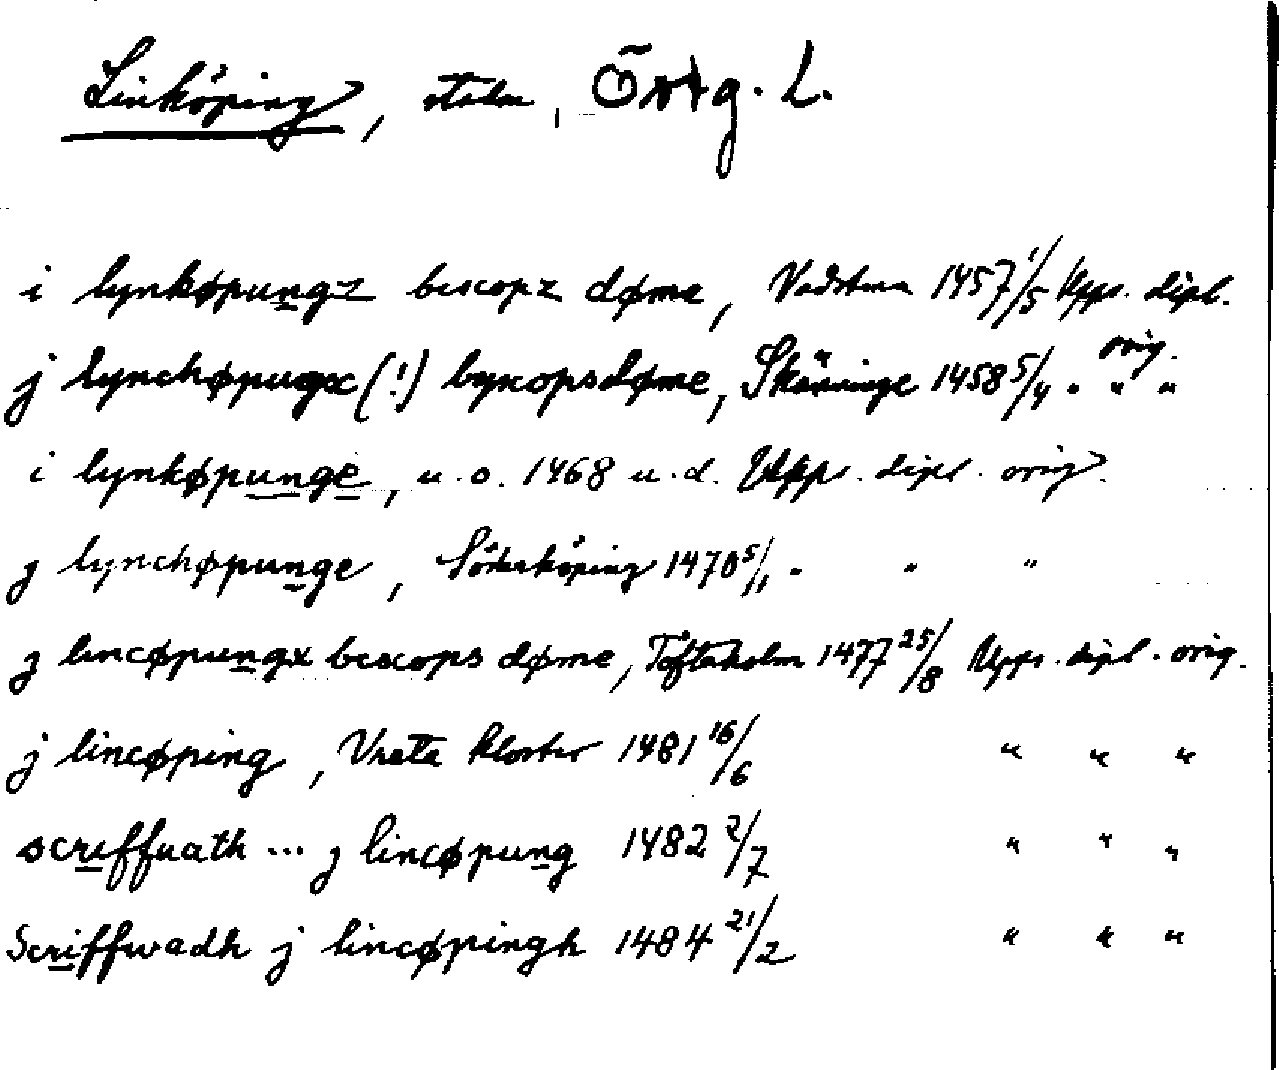 Linköping, staden, Östg. L.
i lynkøpungz bescopz døme, Vadstena 1457 1/5 Upps. dipl. orig.
j lynchøpugx (!) byscopsdøme, Skänninge 1458 5/4 " " "
i lynkøpunge, u.o. 1468 u.d. Upps. dipl. orig.
j lynchøpunge, Söderköping 1470 5/1 " " "
j lincøpungx bescops døme, Toftaholm 1477 25/8 Upps. dipl. orig.
j lincøping, Vreta kloster 1481 16/6 " " "
scriffuath ... j lincøpung 1482 2/7 " " "
Scriffwadh j lincøpingh 1484 21/2 " " "